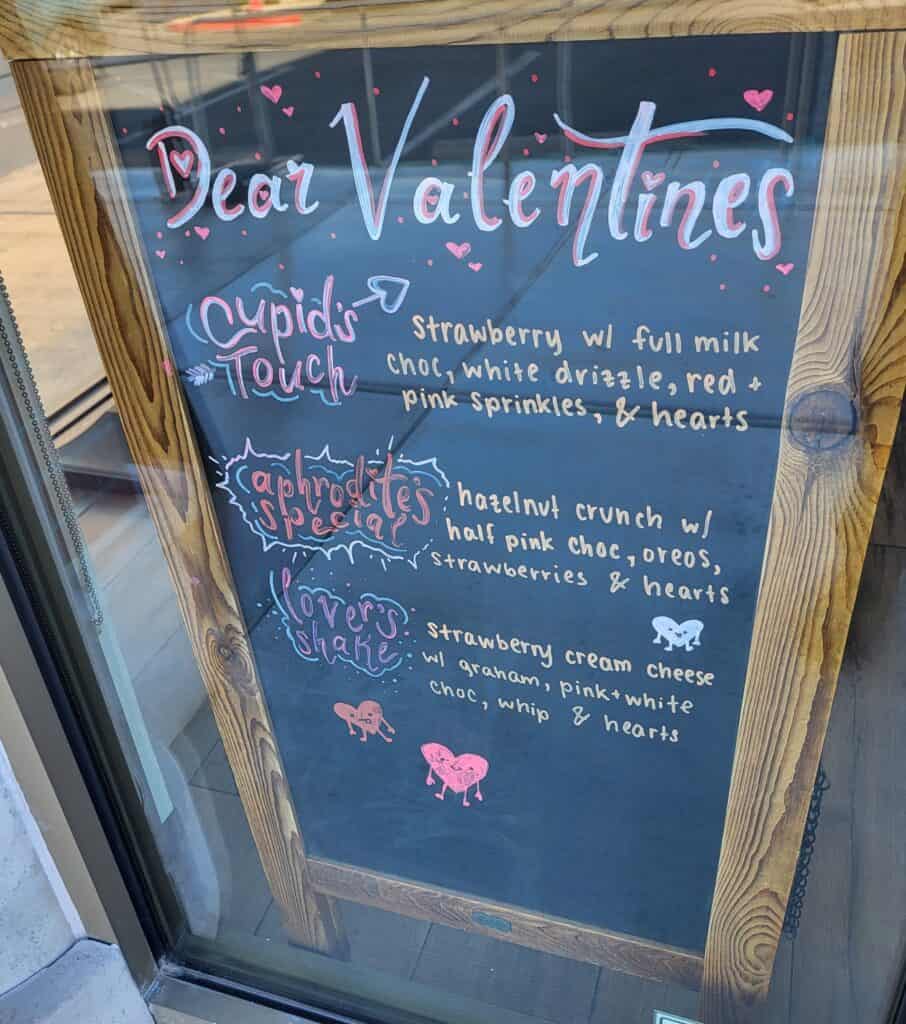 Dear Valentines
Cupid's
Touch
Strawberry w/ full milk
choc, white drizzle, red +
pink sprinkles, & hearts
aphrodite's
special
hazelnut crunch w/
half pink choc, oreos,
strawberries & hearts
lover's
shake
strawberry cream cheese
w/ graham, pink + white
choc, whip & hearts